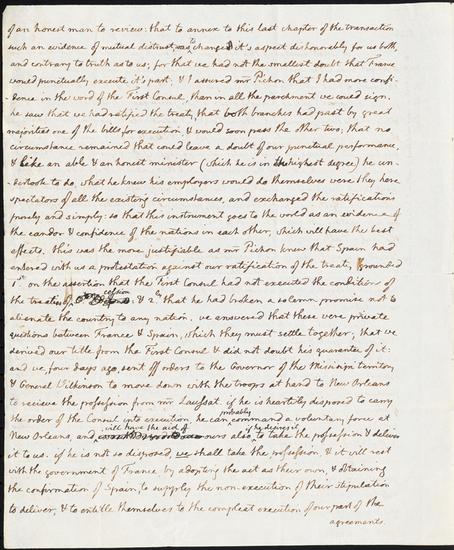 of an honest man to review: that to annex to this last chapter of the transaction
such an evidence of mutual distrust, was to change it's aspect dishonorably for us both,
and contrary to truth as to us; for that we had not the smallest doubt that France
would punctually execute it's part; & I assured mr Pichon that I had more confi-
-dence in the word of the First Consul, than in all the parchment we could sign.
he saw that we had ratified the treaty, that both branches had past by great
majorities one of the bills for execution, & would soon pass the other two; that no
circumstance remained that could leave a doubt of our punctual performance,
& like an able & an honest minister (which he is in the highest degree) he un-
-dertook to do, what he knew his employers would do themselves were they here
spectators of all the existing circumstances, and exchanged the ratifications
purely and simply: so that this instrument goes to the world as an evidence of
the candor & confidence of the nations in each other, which will have the best
effects. this was the more justifiable as mr Pichon knew that Spain had
entered with us a protestation against our ratification of the treaty, grounded
1st on the assertion that the First Consul had not executed the conditions of
the treaties of cession & 2ly that he had broken a solemn promise not to
alienate the country to any nation. we answered that these were private
questions between France & Spain, which they must settle together; that we
derived our title from the First Consul & did not doubt his guarantee of it:
and we, four days ago, sent off orders to the Governor of the Missisipi territory
& General Wilkinson to move down with the troops at hand to New Orleans
to recieve the possession from mr Laussat. if he is heartily disposed to carry
the order of the Consul into execution he can probably command a voluntary force at
New Orleans, and will have the aid of ours also, if he desires it, to take the possession & deliver
it to us. if he is not so disposed, we shall take the possession, & it will rest
with the government of France by adopting the act as their own, & obtaining
the confirmation of Spain, to supply the non-execution of their stipulation
to deliver, & to entitle themselves to the compleat execution of our part of the
agreements.